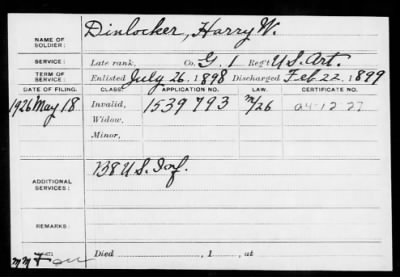 NAME OF SOLDIER: Dinlocker, Harry W.
SERVICE: Late rank, Co. G. 1 Reg't U.S. Art.
TERM OF SERVICE: Enlisted July 26, 1898 Discharged Feb. 22, 1899
DATE OF FILING. CLASS. APPLICATION NO. LAW. CERTIFICATE NO.
1926 May 18 Invalid, 1539793
Widow,
Minor,
ADDITIONAL SERVICES: 138 U.S. Inf.
REMARKS:
Died , 1 , at